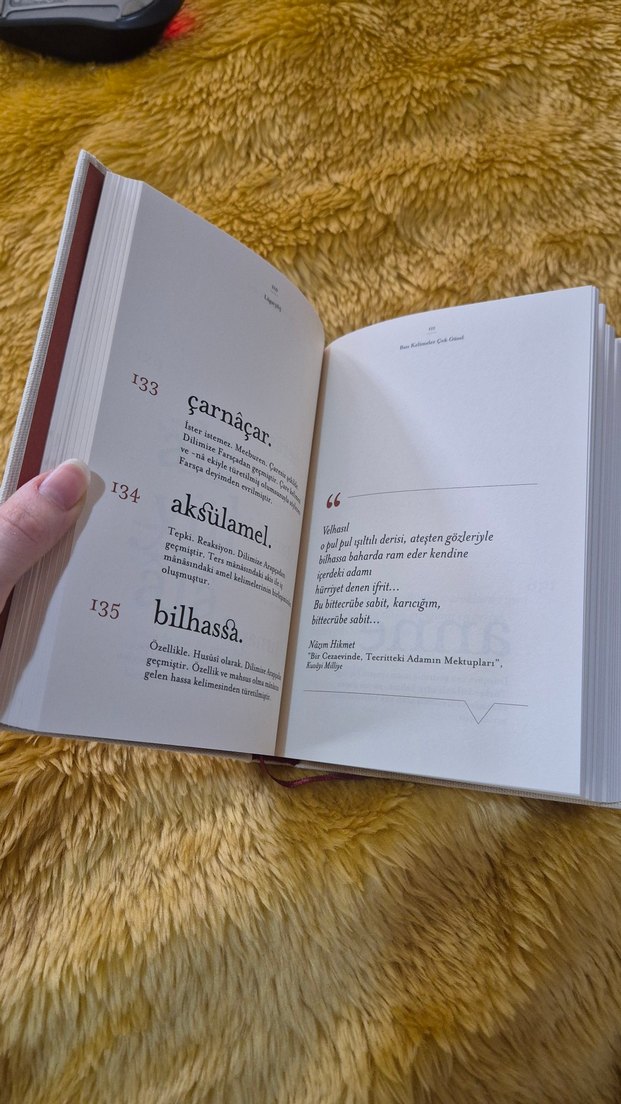 110
Lûgat365
133
çarnâçar.
İster istemez. Mecburen. Çaresiz şekilde.
Dilimize Farsçadan geçmiştir. Çare kelimesi
ve -nâ ekiyle türetilmiş olumsuzuyla
Farsça deyimden evrilmiştir.
134
aksülamel.
Tepki. Reaksiyon. Dilimize Arapçadan
geçmiştir. Ters mânâsındaki aks ile iş
mânâsındaki amel kelimelerinin birleşiminden
oluşmuştur.
135
bilhassa.
Özellikle. Husûsi olarak. Dilimize Arapçadan
geçmiştir. Özellik ve mahsus olma mânâsına
gelen hassa kelimesinden türetilmiştir.
111
Bazı Kelimeler Çok Güzel
“
Velhasıl
o pul pul ışıltılı derisi, ateşten gözleriyle
bilhassa baharda ram eder kendine
içerdeki adamı
hürriyet denen ifrit...
Bu bittecrübe sabit, karıcığım,
bittecrübe sabit...
Nâzım Hikmet
"Bir Cezaevinde, Tecritteki Adamın Mektupları",
Kuvâyi Milliye